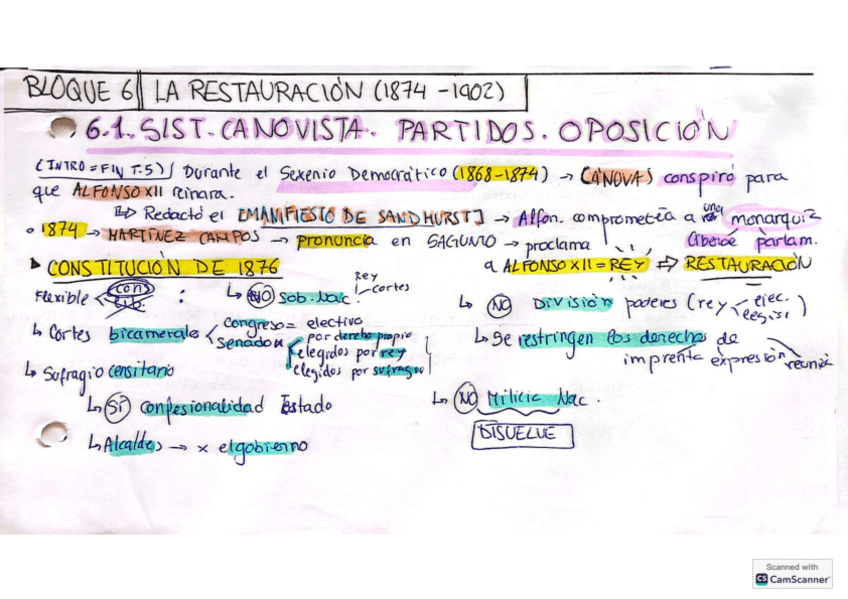 BLOQUE 6 LA RESTAURACIÓN (1874 - 1902)
6.1. SIST. CANOVISTA. PARTIDOS. OPOSICIÓN
(INTRO = FIN T.5) Durante el Sexenio Democrático (1868-1874) → CÁNOVAS conspiró para
que ALFONSO XII reinara.
↳ Redactó el [MANIFIESTO DE SANDHURST] → Alfon. comprometía a una monarquía
liberal parlam.
• 1874 → MARTÍNEZ CAMPOS → pronuncia en SAGUNTO → proclama
a ALFONSO XII = REY ⇒ RESTAURACIÓN
CONSTITUCIÓN DE 1876
Flexible < con :
↳ NO Sob. Nac. Rey cortes
↳ Cortes bicamerales < Congreso = electivo
Senado por derecho propio
elegidos por rey
elegidos por sufragio
↳ Sufragio censitario
↳ SÍ confesionalidad Estado
↳ Alcaldes → x el gobierno
↳ NO División poderes (rey < ejec. legisl)
↳ Se restringen los derechos de
imprenta expresión reunión
↳ NO Milicia Nac.
DISUELVE
Scanned with
CS CamScanner